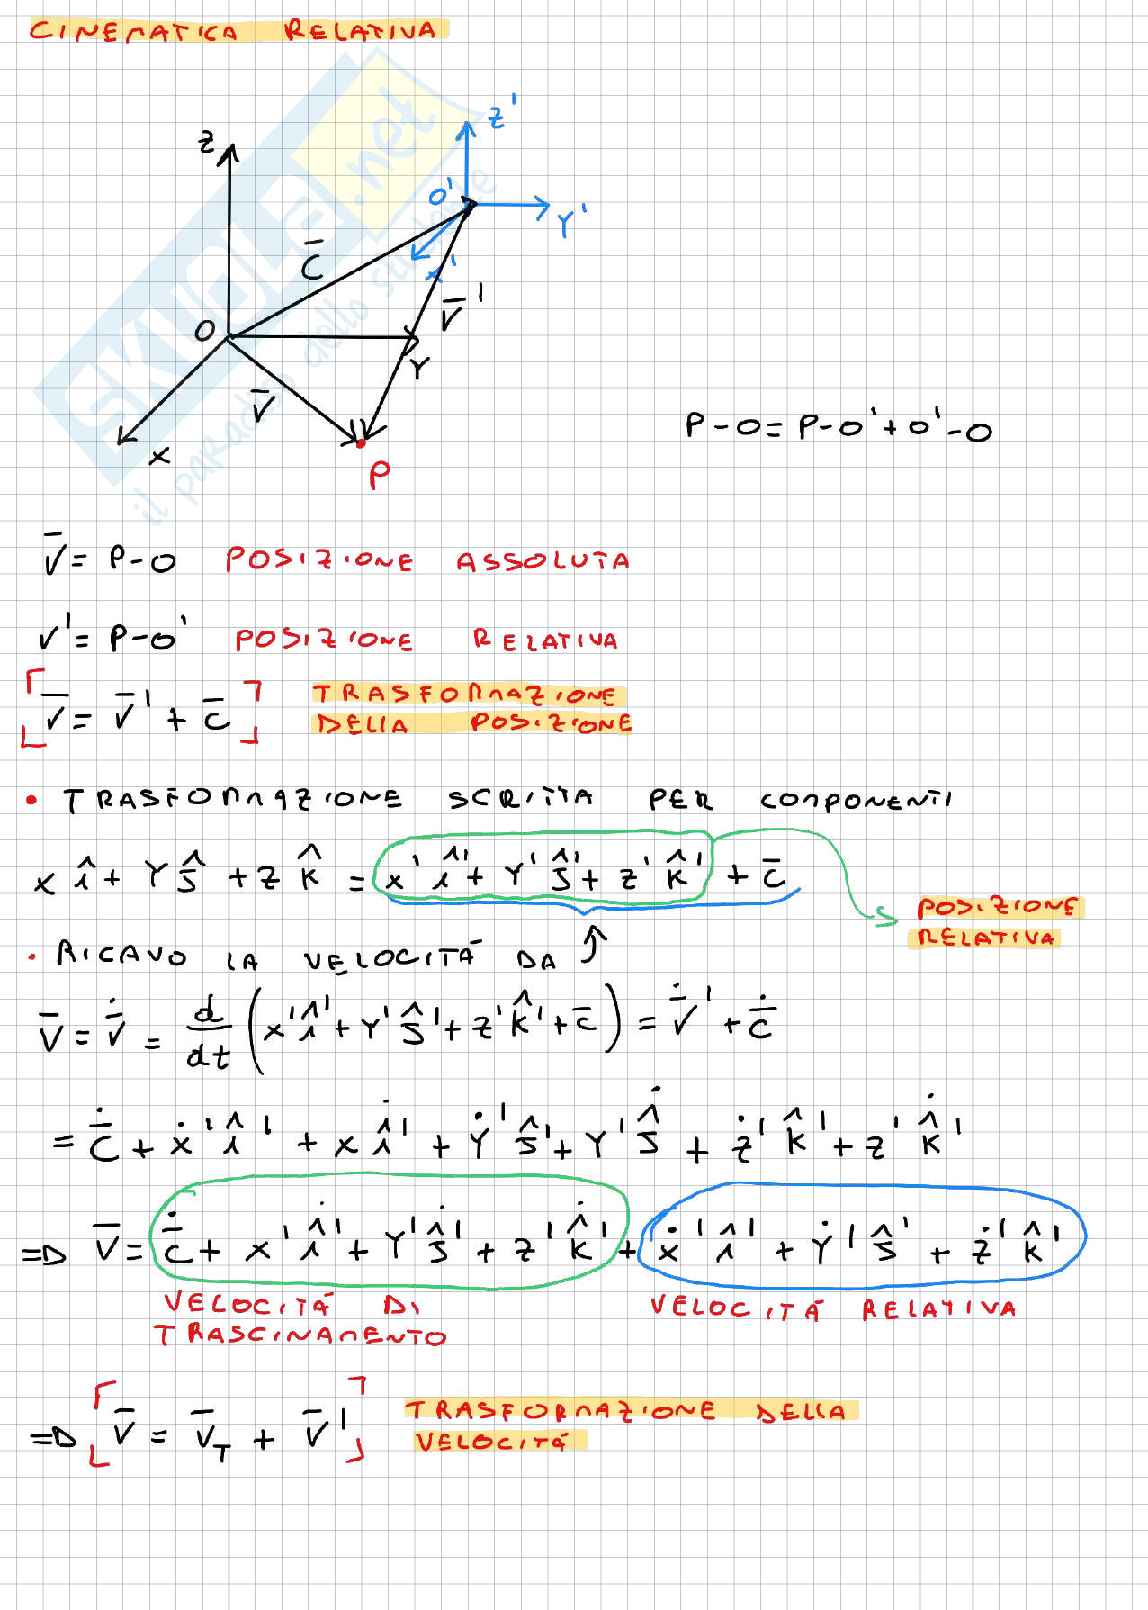 CINEMATICA RELATIVA
SKUOLA.net
il paradiso dello studente
Z
Z'
O'
Y'
X'
C̅
V̅'
O
Y
V̅
X
P
P-O = P-O' + O'-O
V̅ = P-O POSIZIONE ASSOLUTA
V' = P-O' POSIZIONE RELATIVA
[V̅ = V̅' + C̅] TRASFORMAZIONE
DELLA POSIZIONE
• TRASFORMAZIONE SCRITTA PER COMPONENTI
X î + Y ĵ + Z k̂ = X' î' + Y' ĵ' + Z' k̂' + C̅
POSIZIONE
RELATIVA
• RICAVO LA VELOCITÁ DA ↑
V̅ = V̅̇ = d/dt (X' î' + Y' ĵ' + Z' k̂' + C̅) = V̅̇' + C̅̇
= C̅̇ + Ẋ' î' + X î̇' + Ẏ' ĵ' + Y' ĵ̇ + Ż' k̂' + Z' k̂̇'
=D V̅ = C̅̇ + X' î̇' + Y' ĵ̇' + Z' k̂̇' + Ẋ' î' + Ẏ' ĵ' + Ż' k̂'
VELOCITÁ DI
TRASCINAMENTO
VELOCITÁ RELATIVA
=D [V̅ = V̅_T + V̅'] TRASFORMAZIONE DELLA
VELOCITÁ